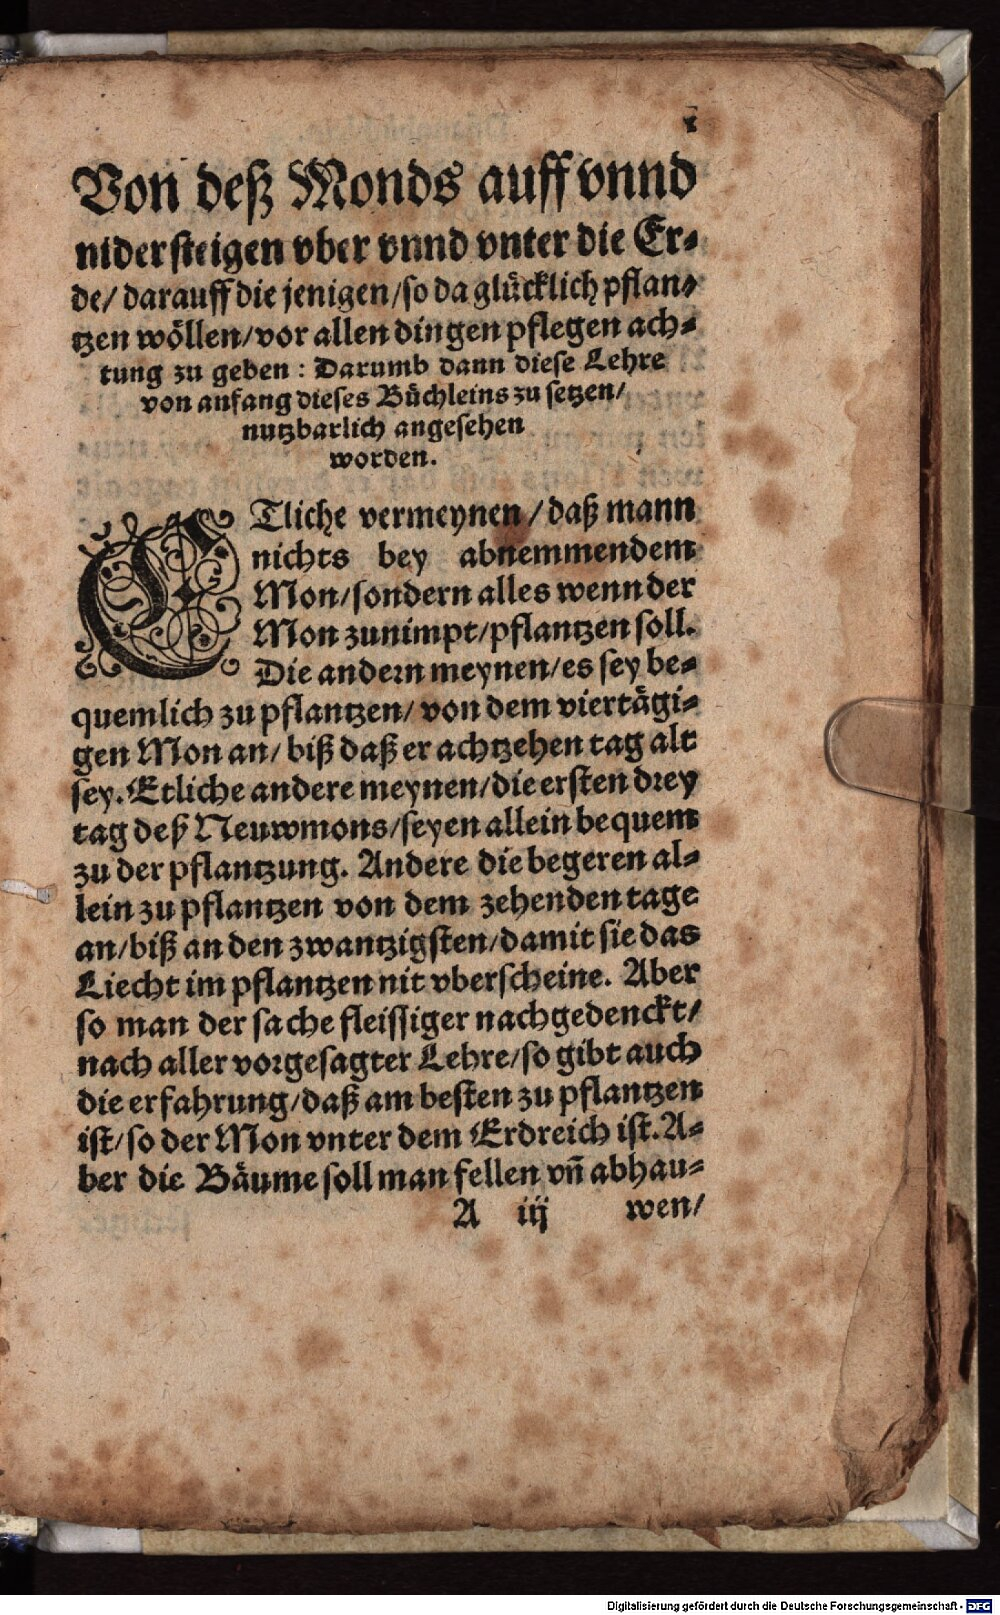 1
Von deß Monds auff vnnd
nidersteigen vber vnnd vnter die Er⸗
de/ darauff die jenigen/ so da glücklich pflan⸗
tzen wöllen/ vor allen dingen pflegen ach⸗
tung zu geben : Darumb dann diese Lehre
von anfang dieses Büchleins zu setzen/
nutzbarlich angesehen
worden.
ETliche vermeynen / daß mann
nichts bey abnemmendem
Mon/ sondern alles wenn der
Mon zunimpt/ pflantzen soll.
Die andern meynen/ es sey be⸗
quemlich zu pflantzen/ von dem viertägi⸗
gen Mon an/ biß daß er achtzehen tag alt
sey. Etliche andere meynen/ die ersten drey
tag deß Neuwmons/ seyen allein bequem
zu der pflantzung. Andere die begeren al⸗
lein zu pflantzen von dem zehenden tage
an/ biß an den zwantzigsten/ damit sie das
Liecht im pflantzen nit vberscheine. Aber
so man der sache fleissiger nachgedenckt/
nach aller vorgesagter Lehre/ so gibt auch
die erfahrung/ daß am besten zu pflantzen
ist/ so der Mon vnter dem Erdreich ist. A⸗
ber die Bäume soll man fellen vñ abhau⸗
A iij wen/
Digitalisierung gefördert durch die Deutsche Forschungsgemeinschaft - DFG